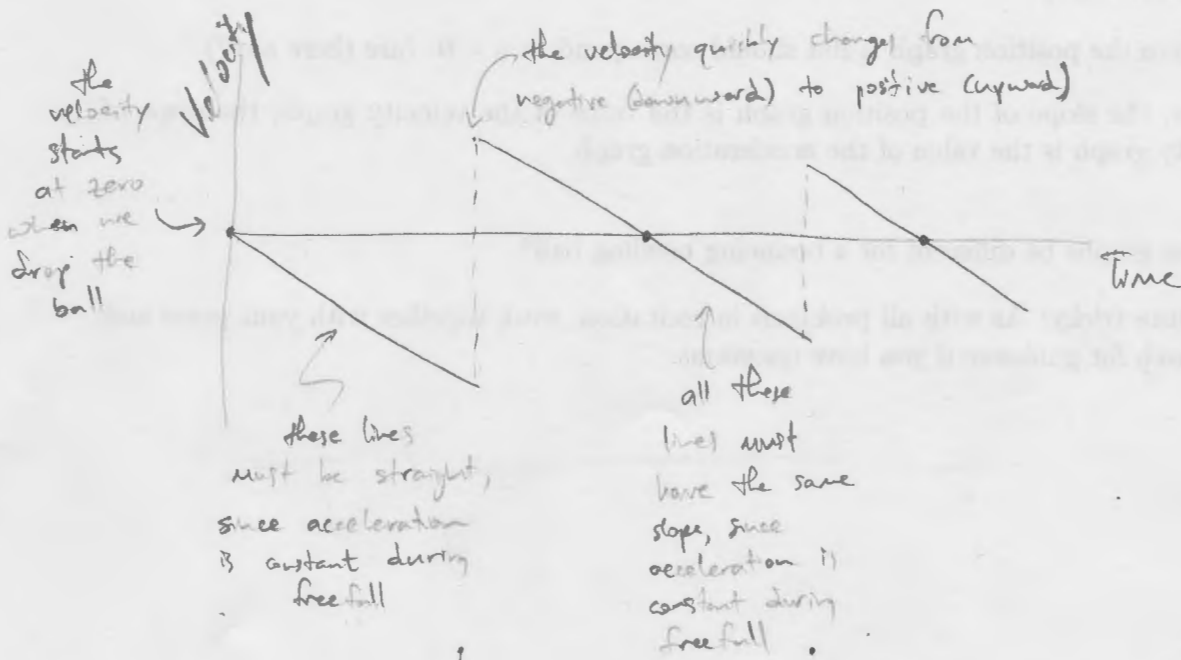 Velocity
the
velocity
starts
at zero
when we
drop the
ball
the velocity quickly changes from
negative (downward) to positive (upward)
Time
these lines
must be straight,
since acceleration
is constant during
freefall
all these
lines must
have the same
slope, since
acceleration is
constant during
freefall